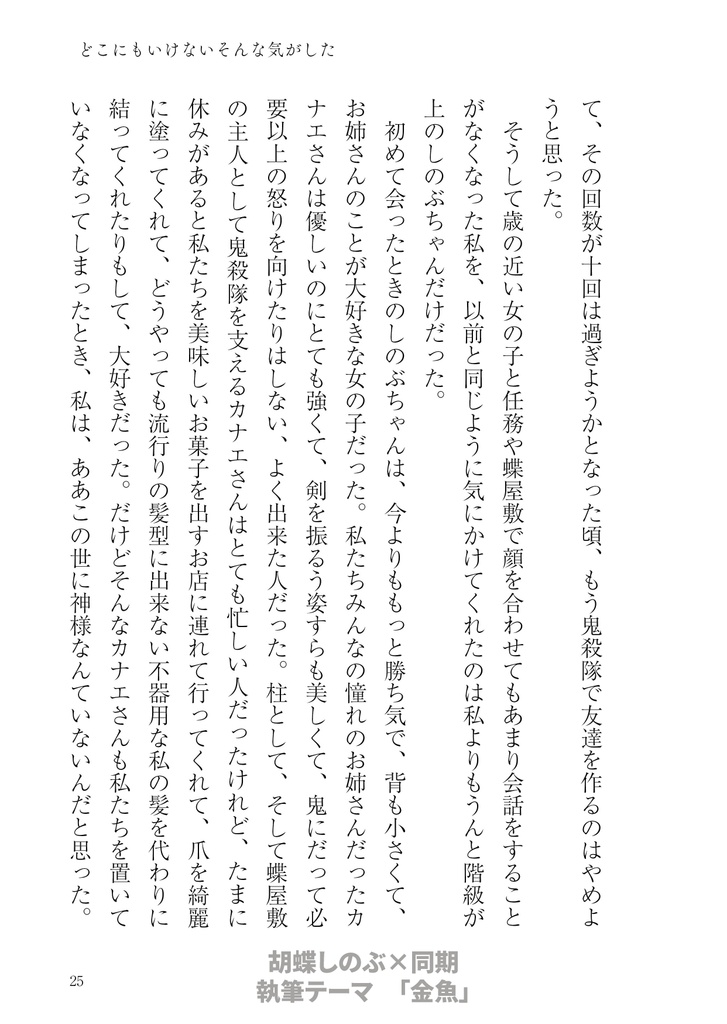 どこにもいけないそんな気がした
て、その回数が十回は過ぎようかとなった頃、もう鬼殺隊で友達を作るのはやめよ
うと思った。
そうして歳の近い女の子と任務や蝶屋敷で顔を合わせてもあまり会話をすること
がなくなった私を、以前と同じように気にかけてくれたのは私よりもうんと階級が
上のしのぶちゃんだけだった。
初めて会ったときのしのぶちゃんは、今よりももっと勝ち気で、背も小さくて、
お姉さんのことが大好きな女の子だった。私たちみんなの憧れのお姉さんだったカ
ナエさんは優しいのにとても強くて、剣を振るう姿すらも美しくて、鬼にだって必
要以上の怒りを向けたりはしない、よく出来た人だった。柱として、そして蝶屋敷
の主人として鬼殺隊を支えるカナエさんはとても忙しい人だったけれど、たまに
休みがあると私たちを美味しいお菓子を出すお店に連れて行ってくれて、爪を綺麗
に塗ってくれて、どうやっても流行りの髪型に出来ない不器用な私の髪を代わりに
結ってくれたりもして、大好きだった。だけどそんなカナエさんも私たちを置いて
いなくなってしまったとき、私は、ああこの世に神様なんていないんだと思った。
25
胡蝶しのぶ×同期
執筆テーマ 「金魚」